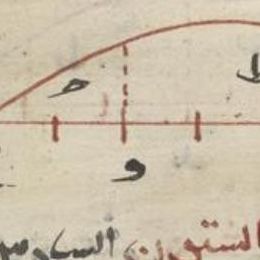 ط ح
و
الستون السادس